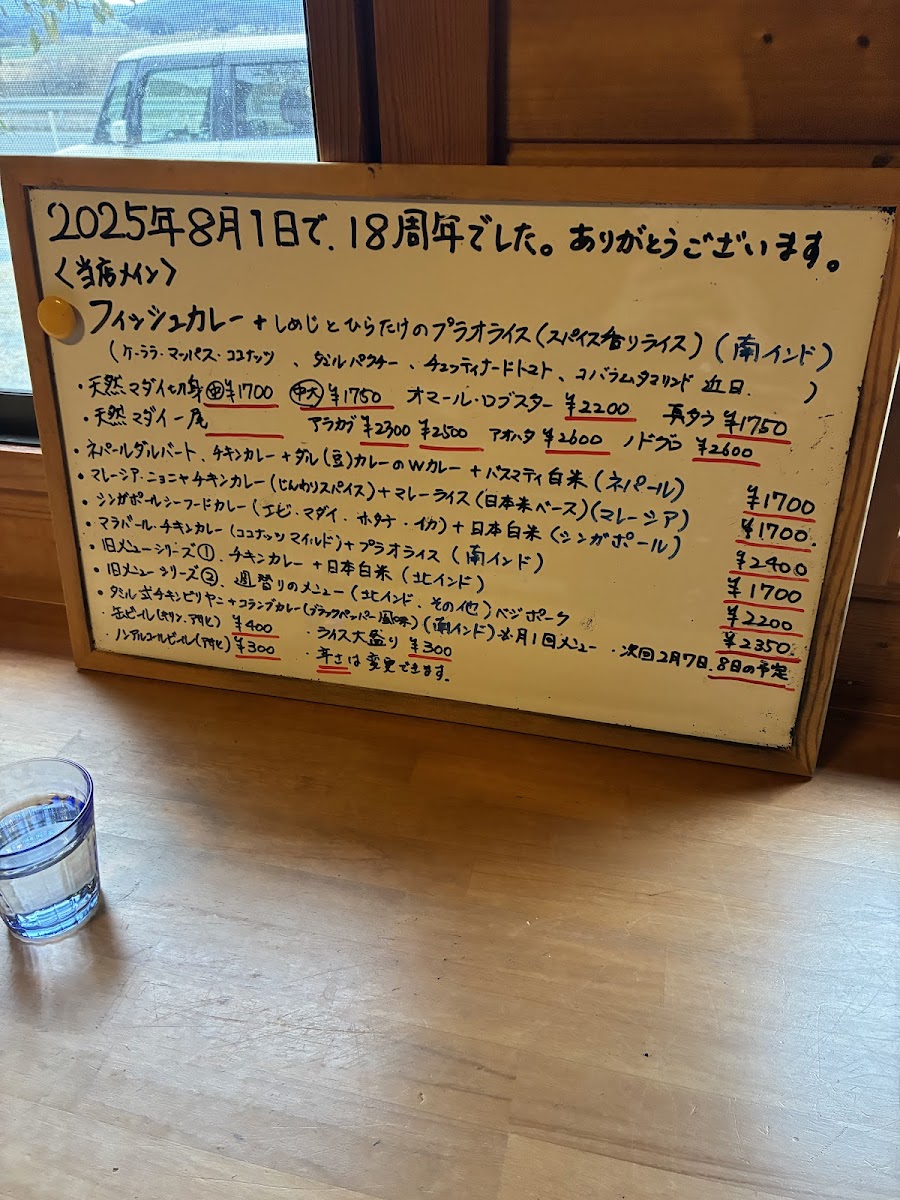 2025年8月1日で、18周年でした。ありがとうございます。
〈当店メイン〉
フィッシュカレー+しめじとひらたけのプラオライス(スパイス香りライス)(南インド)
(ケーララ・マッパス・ココナッツ、タミルパクチー、チェッティナードトマト、コバラムタマリンド 近日. )
・天然マダイ切り身 中 ¥1700 中大 ¥1750 オマール・ロブスター ¥2200 真タラ ¥1750
・天然マダイ一尾 アラカブ ¥2300 ¥2500 アオハタ ¥2600 ノドグロ ¥2600
・ネパールダルバート、チキンカレー+ダル(豆)カレーのWカレー+バスマティ白米(ネパール) ¥1700
・マレーシア・ニョニャチキンカレー(じんわりスパイス)+マレーライス(日本米ベース)(マレーシア) ¥1700
・シンガポールシーフードカレー(エビ・マダイ・ホタテ・イカ)+日本白米(シンガポール) ¥2400
・マラバール・チキンカレー(ココナッツマイルド)+プラオライス(南インド) ¥1700
・旧メニューシリーズ①、チキンカレー+日本白米(北インド) ¥2200
・旧メニューシリーズ②、週替りのメニュー(北インド、その他)ベジポーク ¥2350
・タミル式チキンビリヤニ+コランブカレー(ブラックペッパー風味)(南インド)※月1回メニュー・次回2月7日.8日の予定
・缶ビール(キリン、アサヒ) ¥400 ・ライス大盛り ¥300
・ノンアルコールビール(アサヒ) ¥300 ・辛さは変更できます。